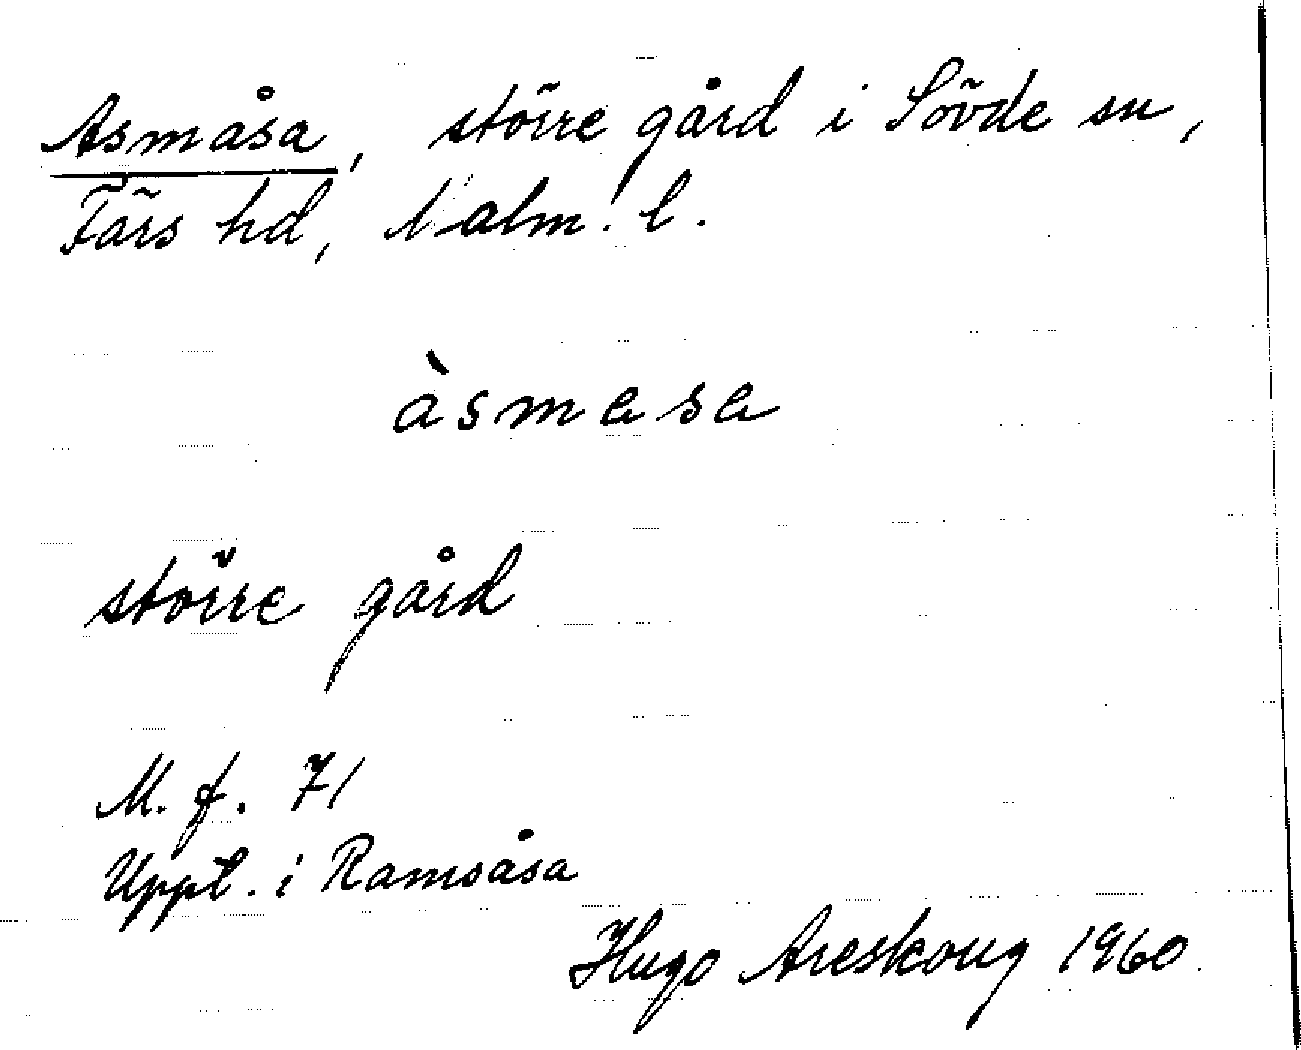 Asmåsa, större gård i Sövde sn,
Färs hd, Malm. l.
àsmasa
större gård
M. f. 71
Uppt. i Ramsåsa
Hugo Areskoug 1960